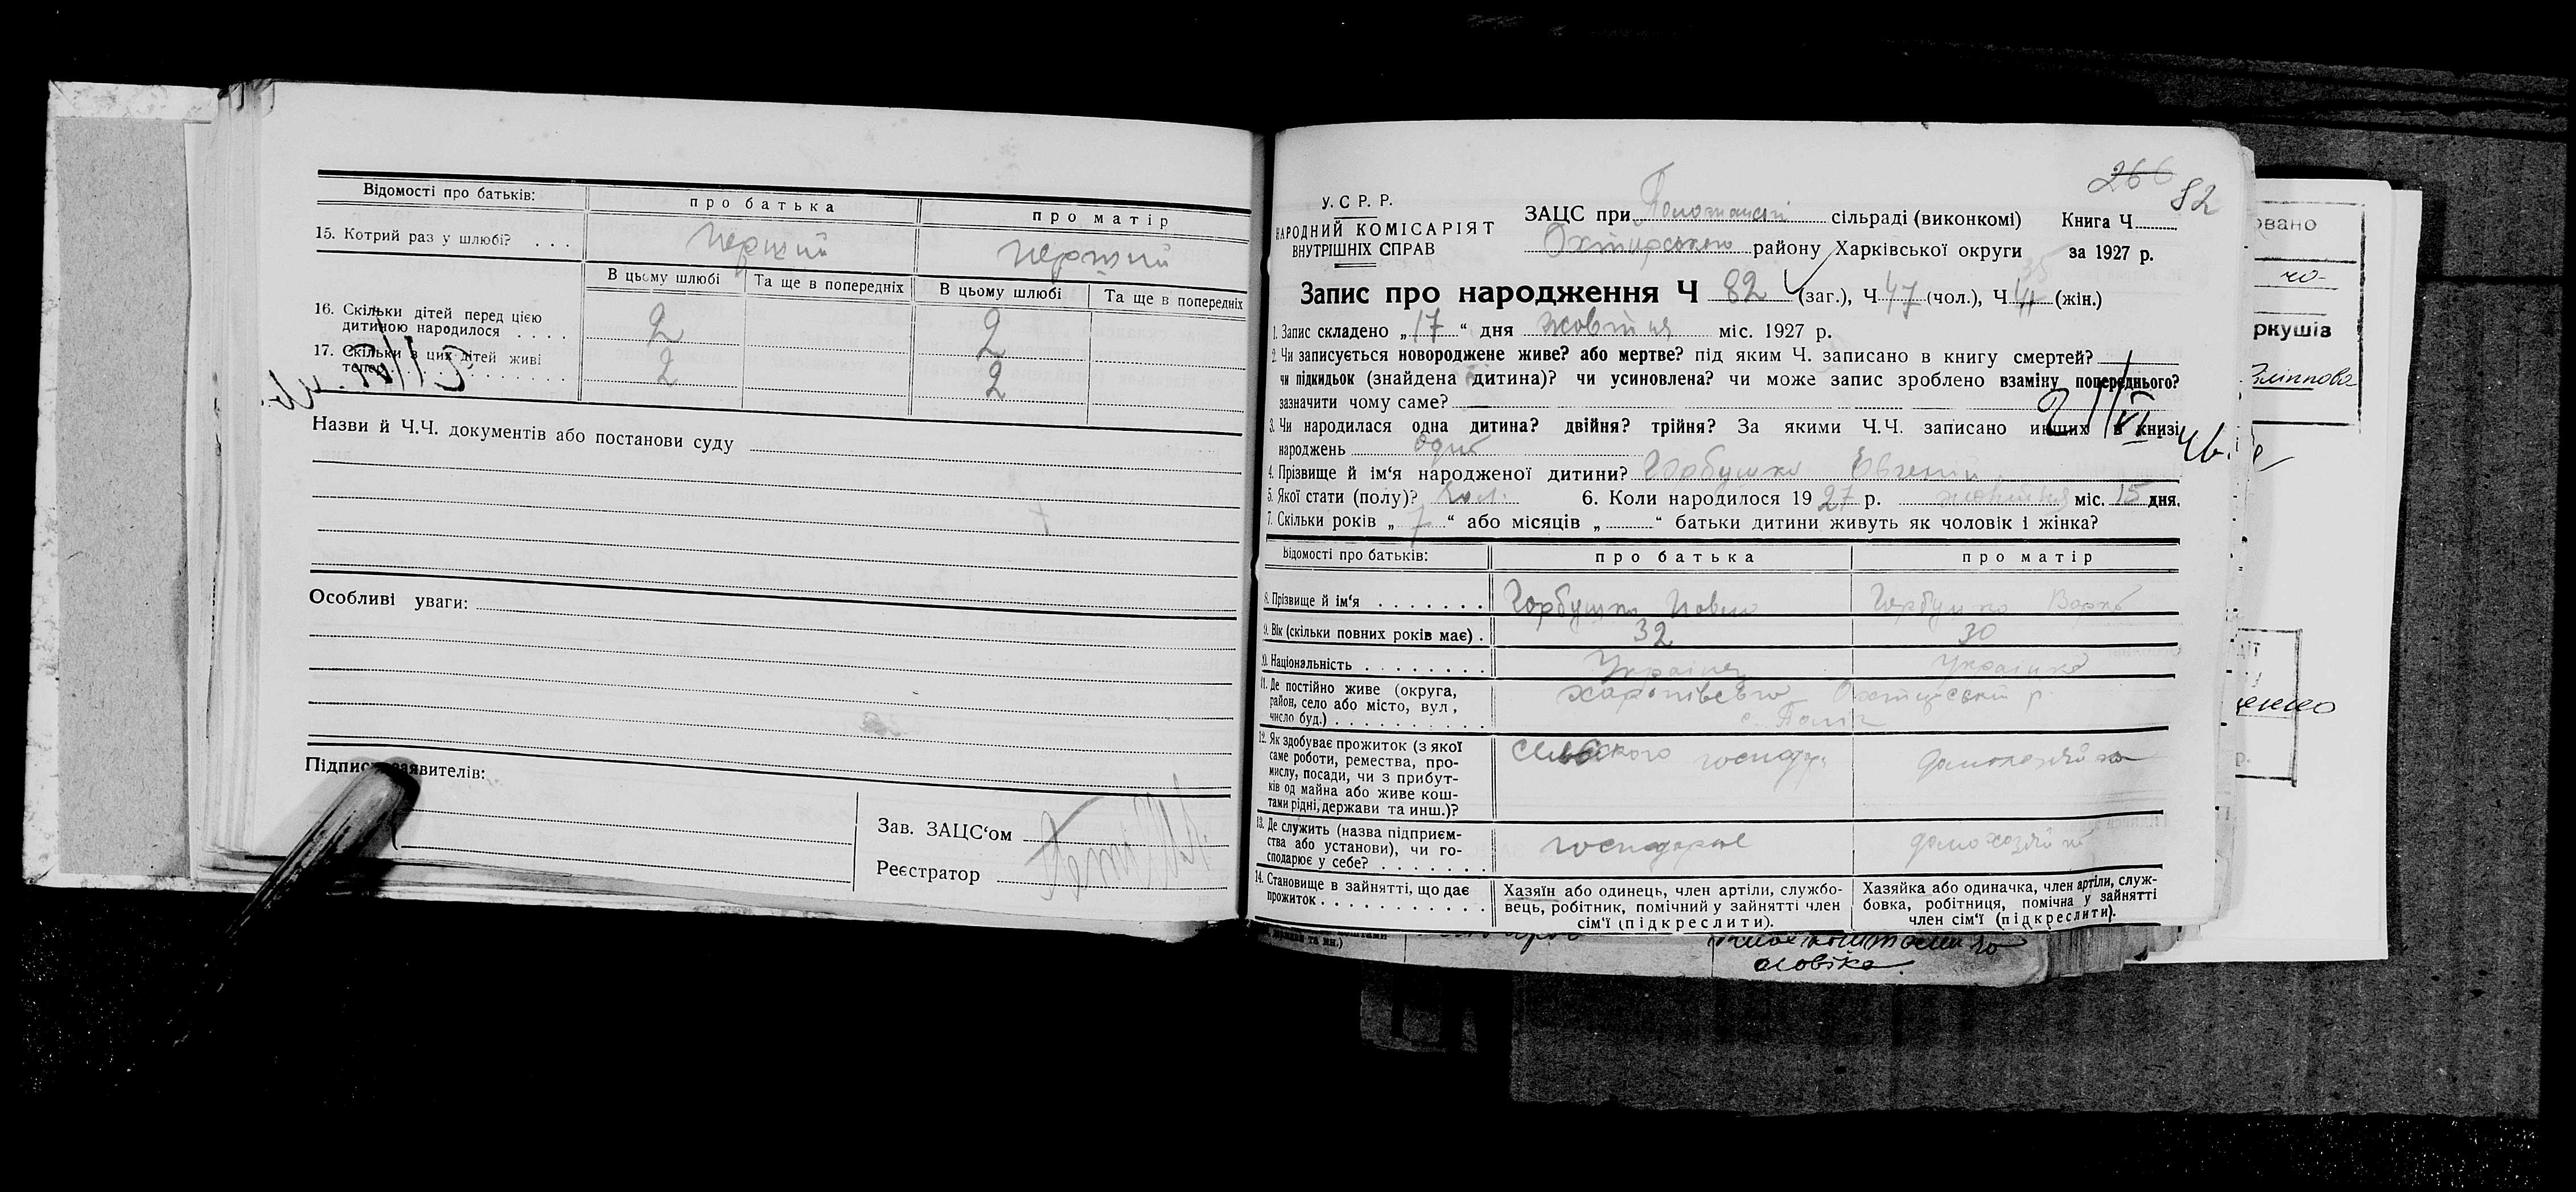 Відомості про батьків: про батька про матір
15. Котрий раз у шлюбі? . . . перший перший
В цьому шлюбі Та ще в попередніх В цьому шлюбі Та ще в попередніх
16. Скільки дітей перед цією
дитиною народилося . . . . 2 2
17. Скільки з цих дітей живі
тепер 2 2
Назви й Ч.Ч. документів або постанови суду
Особливі уваги:
Підписи заявителів:
Зав. ЗАЦС‘ом
Реєстратор
266 82
У.С Р. Р.
НАРОДНИЙ КОМІСАРІЯТ
ВНУТРІШНІХ СПРАВ
ЗАЦС при сільраді (виконкомі) Книга Ч.
Охтирського району Харківської округи за 1927 р.
Запис про народження Ч 82 (заг.), Ч 47 (чол.), Ч (жін.)
1. Запис складено „17“ дня жовтня міс. 1927 р.
2. Чи записується новороджене живе? або мертве? під яким Ч. записано в книгу смертей?
чи підкидьок (знайдена дитина)? чи усиновлена? чи може запис зроблено взаміну попереднього?
зазначити чому саме?
3. Чи народилася одна дитина? двійня? трійня? За якими Ч.Ч. записано инших в книзі
народжень одна
4. Прізвище й ім‘я народженої дитини? Горбушко Евгений
5. Якої стати (полу)? чол. 6. Коли народилося 1927 р. жовтня міс. 15 дня.
7. Скільки років „7“ або місяців „ “ батьки дитини живуть як чоловік і жінка?
Відомості про батьків: про батька про матір
8. Прізвище й ім‘я . . . . . . . Горбушко Павло Горбушко Варка
9. Вік (скільки повних років має) . 32 30
10. Національність . . . . . . . . Українец Українка
11. Де постійно живе (округа,
район, село або місто, вул,
число буд.) . . . . . . . . . .
12. Як здобуває прожиток (з якої
саме роботи, ремества, про-
мислу, посади, чи з прибут-
ків од майна або живе кош-
тами рідні, держави та инш.)?
сільского господ. домохазяйка
13. Де служить (назва підприєм-
ства або установи), чи го-
сподарює у себе? . . . . . . .
господарює домохазяйка
14. Становище в зайнятті, що дає
прожиток . . . . . . . . . . . .
Хазяїн або одинець, член артіли, службо-
вець, робітник, помічний у зайнятті член
сім‘ї (підкреслити).
Хазяйка або одиначка, член артіли, служ-
бовка, робітниця, помічна у зайнятті
член сім‘ї (підкреслити).
чоловіка.
овано
ркушів